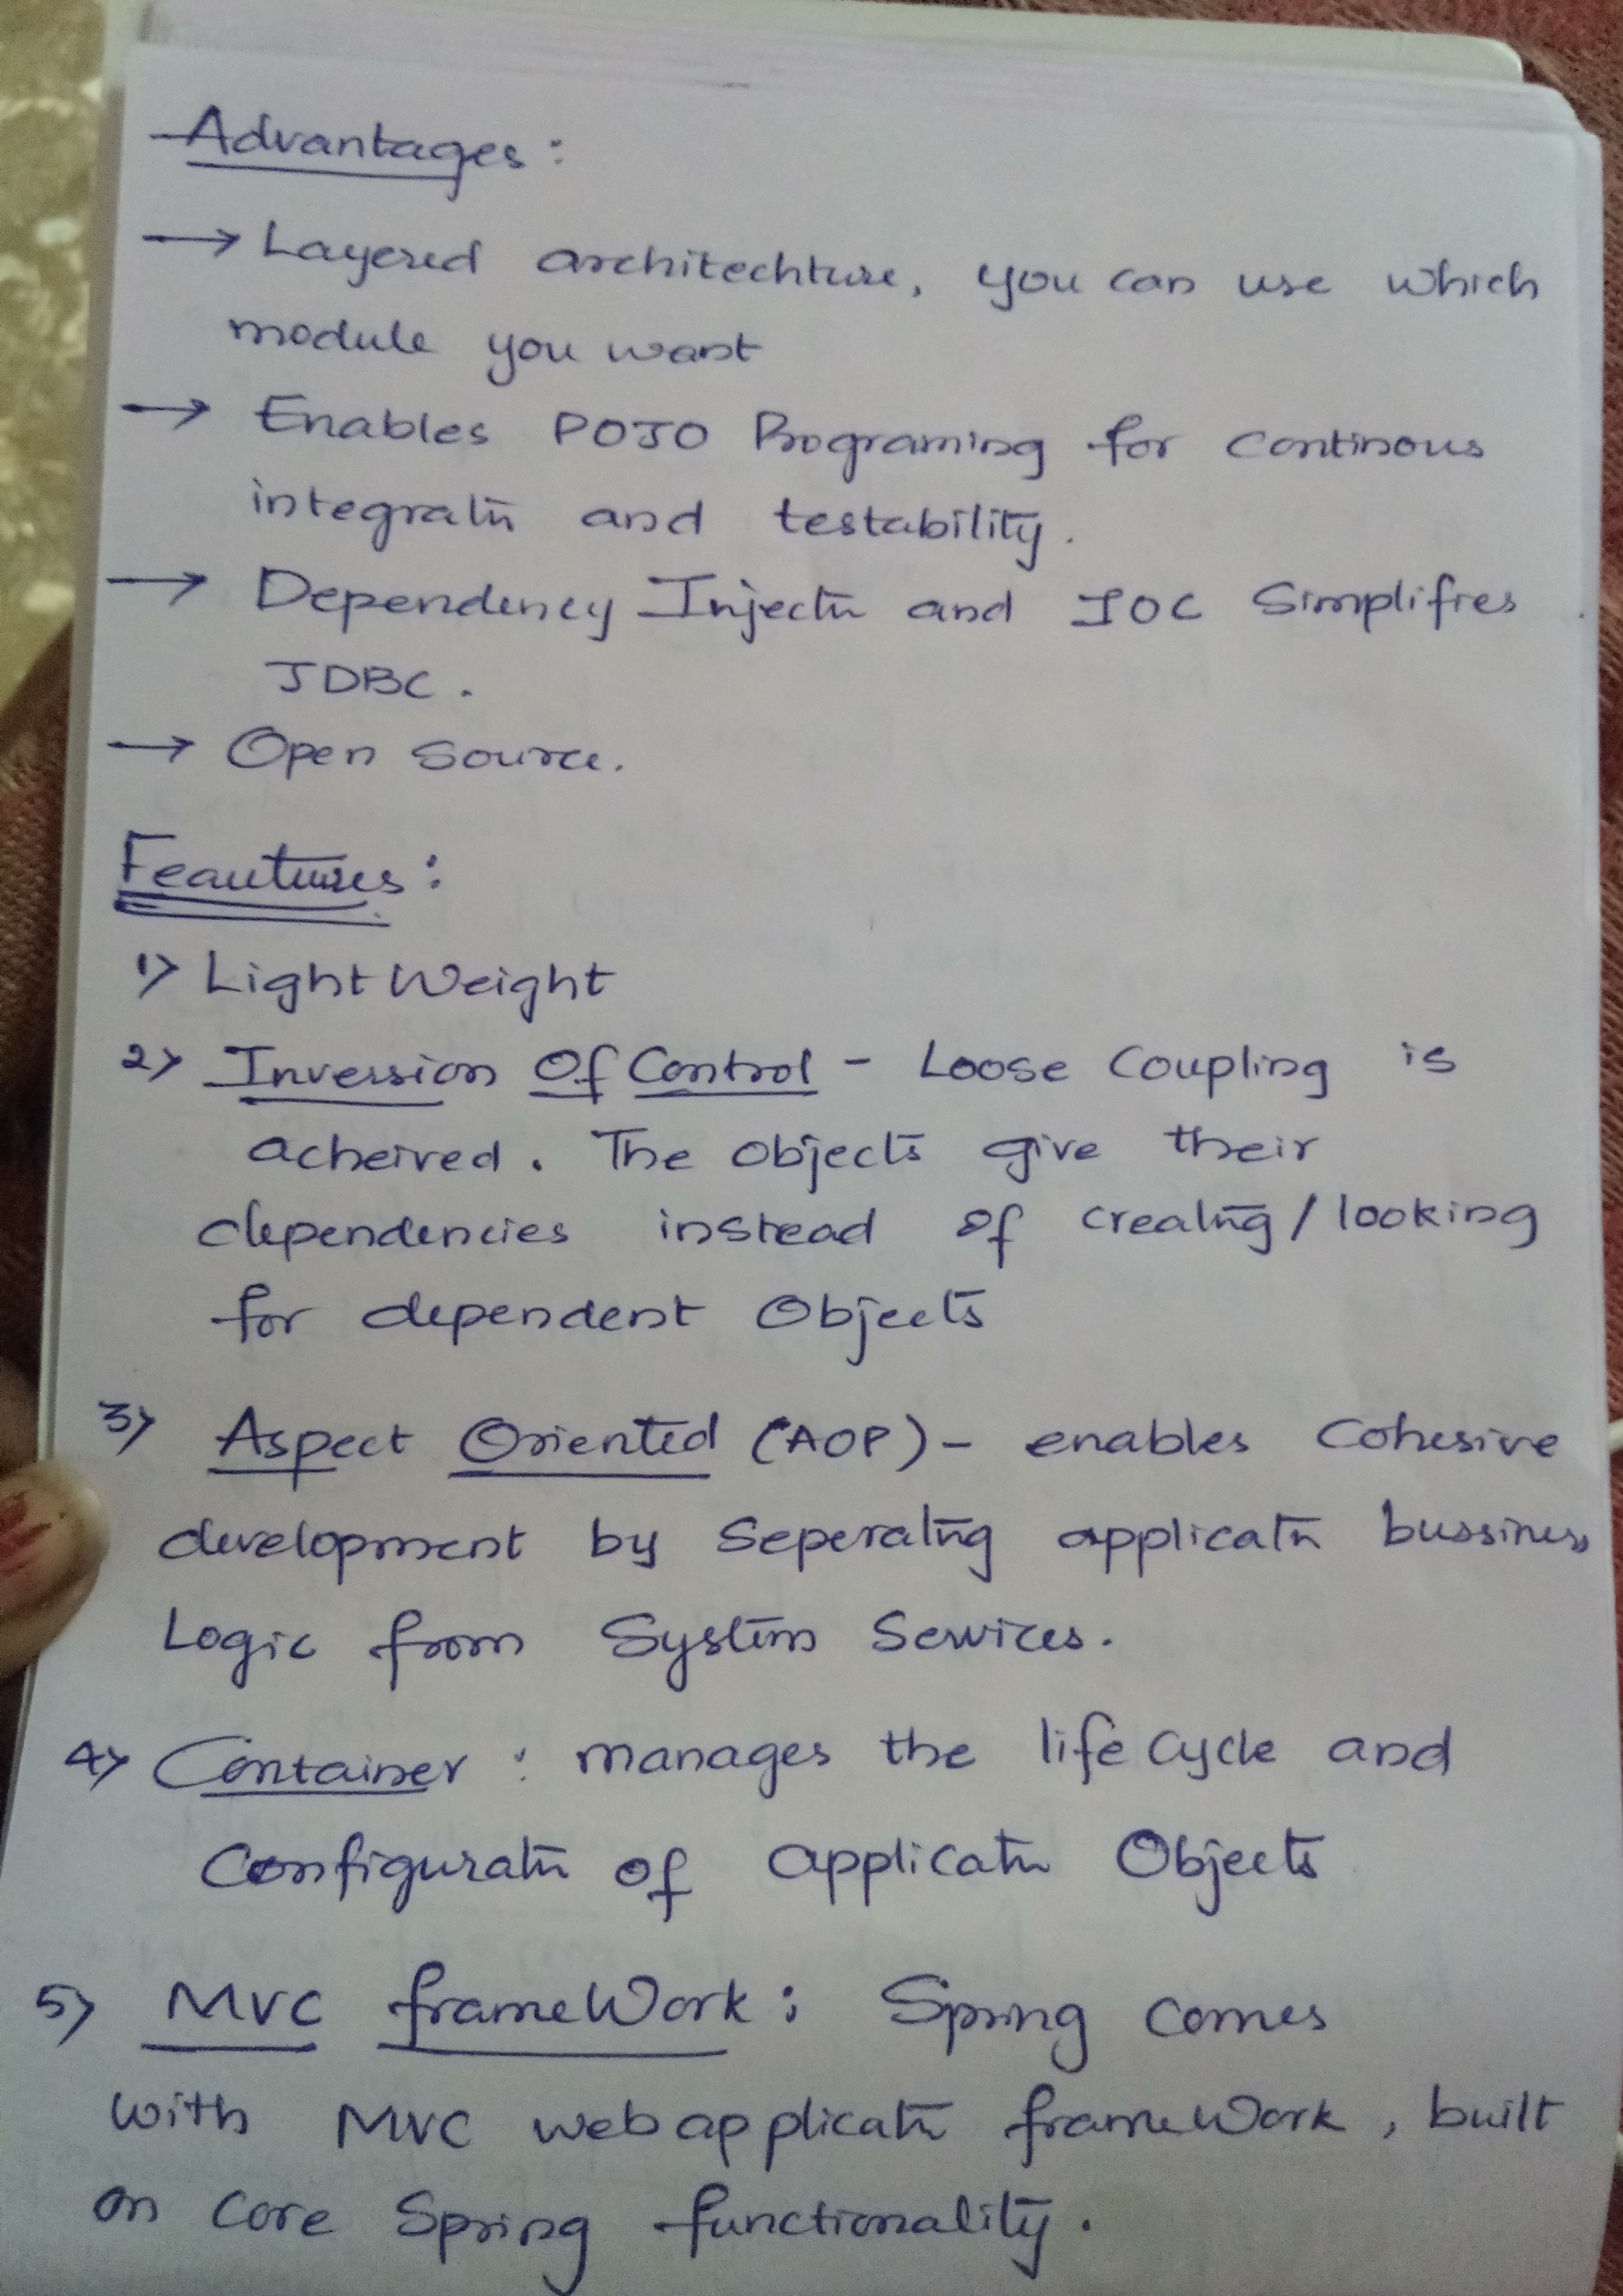 Advantages :
→ Layered architechture, you can use which
module you want
→ Enables POJO Programing for Continous
integratn and testability.
→ Dependency Injectn and IOC Simplifies
JDBC.
→ Open Source.
Feautures :
1) Light Weight
2) Inversion Of Control - Loose Coupling is
acheived. The Objects give their
dependencies instead of creating / looking
for dependent Objects
3) Aspect Oriented (AOP) - enables Cohesive
development by Seperating applicatn bussiness
Logic from System Services.
4) Container : manages the life cycle and
Configuratn of applicatn Objects
5) MVC frameWork : Spring comes
with MVC web applicatn frameWork, built
on core Spring functionality.